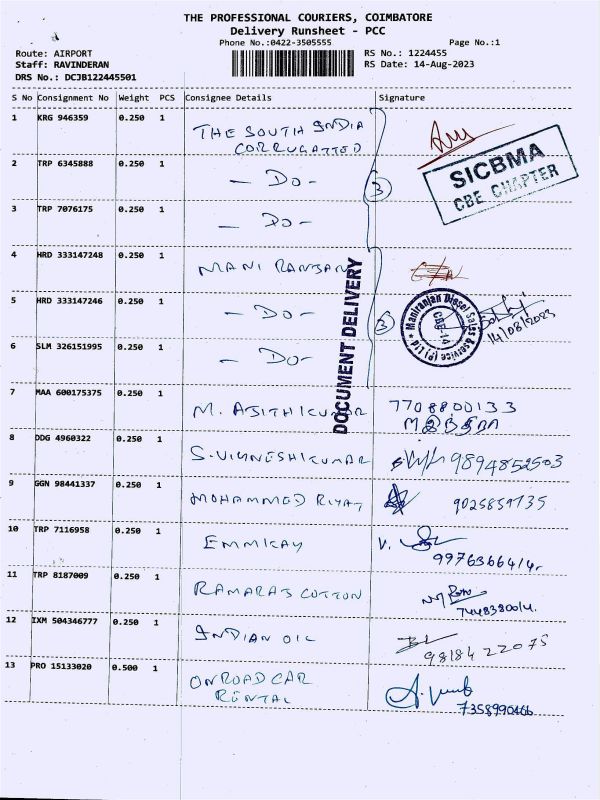 THE PROFESSIONAL COURIERS, COIMBATORE
Delivery Runsheet - PCC
Phone No.:0422-3505555
Page No.:1
Route: AIRPORT
RS No.: 1224455
Staff: RAVINDERAN
RS Date: 14-Aug-2023
DRS No.: DCJB122445501
S No Consignment No Weight PCS Consignee Details Signature
1 KRG 946359 0.250 1 THE SOUTH INDIA
CORRUGATTED
SICBMA
CBE CHAPTER
2 TRP 6345888 0.250 1 - DO -
3
3 TRP 7076175 0.250 1 - DO -
4 HRD 333147248 0.250 1 MANI RANJAN
DOCUMENT DELIVERY
5 HRD 333147246 0.250 1 - DO -
3
Maniranjan Diesel Sales & Service (P) Ltd
CBE-14
14/08/2023
6 SLM 326151995 0.250 1 - DO -
7 MAA 600175375 0.250 1 M. AJITHKUMAR 7708800133
8 DDG 4960322 0.250 1 S. VIGNESHKUMAR 9894852503
9 GGN 98441337 0.250 1 MOHAMMED RIYAJ 9025851735
10 TRP 7116958 0.250 1 EMMKAY V.
9976366414.
11 TRP 8187009 0.250 1 RAMARAJ COTTON
12 IXM 504346777 0.250 1 INDIAN OIL
9818422075
13 PRO 15133020 0.500 1 ONROAD CAR
RENTAL
7358990466